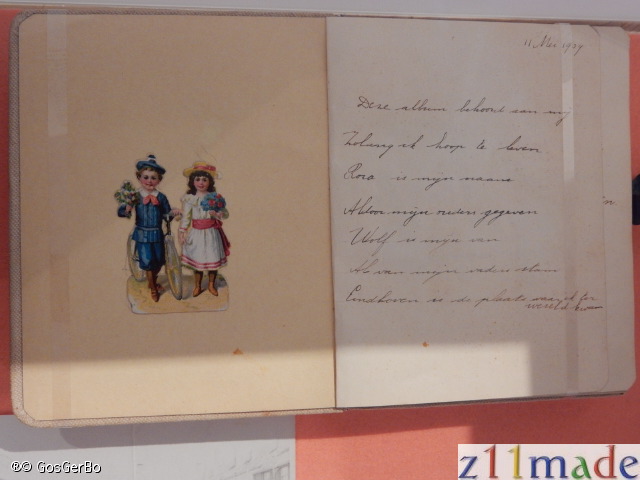 11 Mei 1929
Deze album behoort aan mij
Zolang ik hoop te leven
Rosa is mijn naam
Al door mijn ouders gegeven
Wolf is mijn van
Als van mijn vaders stam
Eindhoven is de plaats waar ik ter
wereld kwam
in
® © GosGerBo
z11made